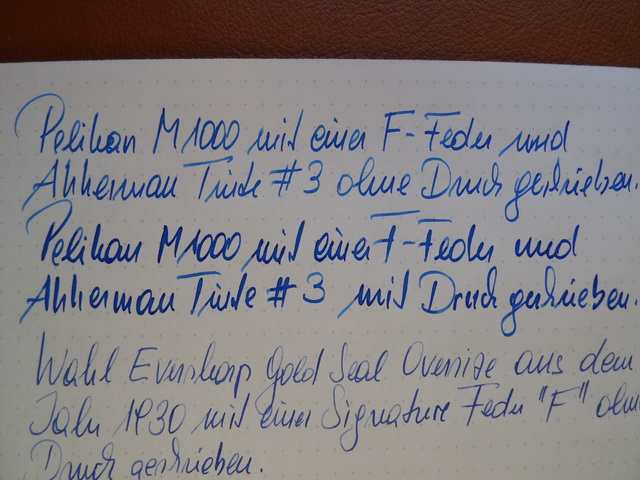 Pelikan M1000 mit einer F-Feder und
Akkerman Tinte #3 ohne Druck geschrieben.
Pelikan M1000 mit einer F-Feder und
Akkerman Tinte #3 mit Druck geschrieben.
Wahl Eversharp Gold Seal Oversize aus dem
Jahr 1930 mit einer Signature Feder "F" ohne
Druck geschrieben.